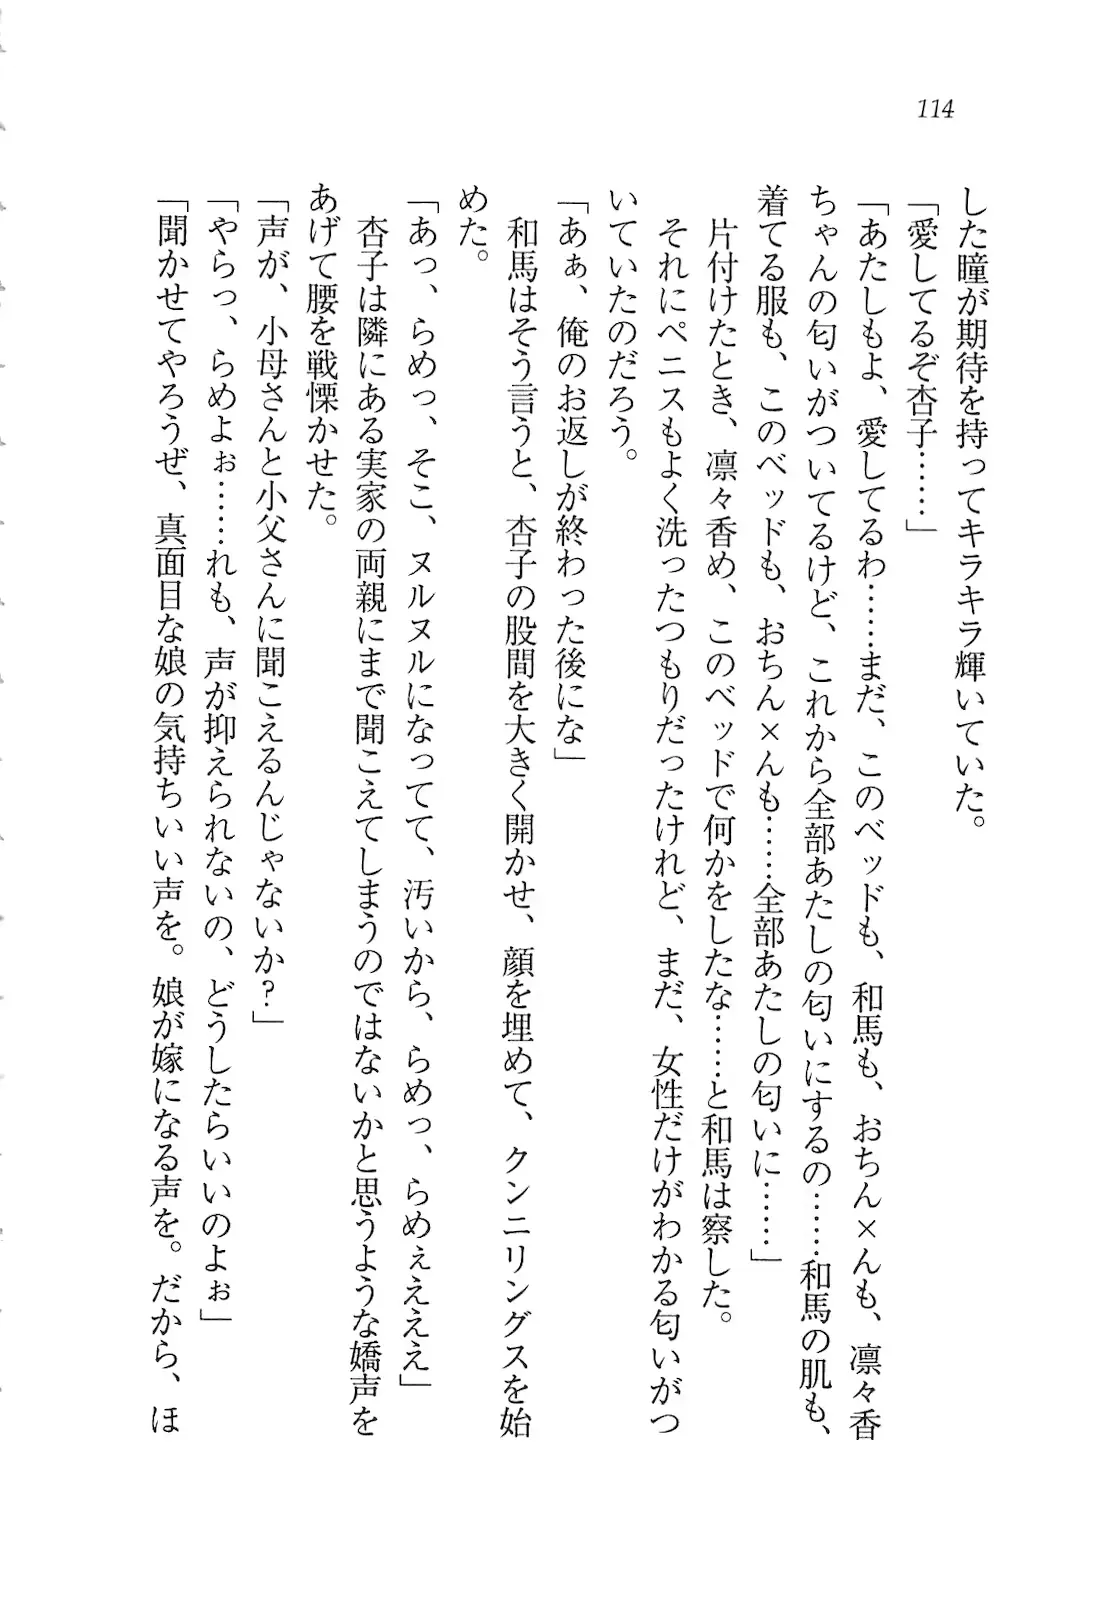 114
した瞳が期待を持ってキラキラ輝いていた。
「愛してるぞ杏子……」
「あたしもよ、愛してるわ……まだ、このベッドも、和馬も、おちん×んも、凛々香
ちゃんの匂いがついてるけど、これから全部あたしの匂いにするの……和馬の肌も、
着てる服も、このベッドも、おちん×んも……全部あたしの匂いに……」
片付けたとき、凛々香め、このベッドで何かをしたな……と和馬は察した。
それにペニスもよく洗ったつもりだったけれど、まだ、女性だけがわかる匂いがつ
いていたのだろう。
「あぁ、俺のお返しが終わった後にな」
和馬はそう言うと、杏子の股間を大きく開かせ、顔を埋めて、クンニリングスを始
めた。
「あっ、らめっ、そこ、ヌルヌルになってて、汚いから、らめっ、らめぇえええ」
杏子は隣にある実家の両親にまで聞こえてしまうのではないかと思うような嬌声を
あげて腰を戦慄かせた。
「声が、小母さんと小父さんに聞こえるんじゃないか?」
「やらっ、らめよぉ……れも、声が抑えられないの、どうしたらいいのよぉ」
「聞かせてやろうぜ、真面目な娘の気持ちいい声を。娘が嫁になる声を。だから、ほ